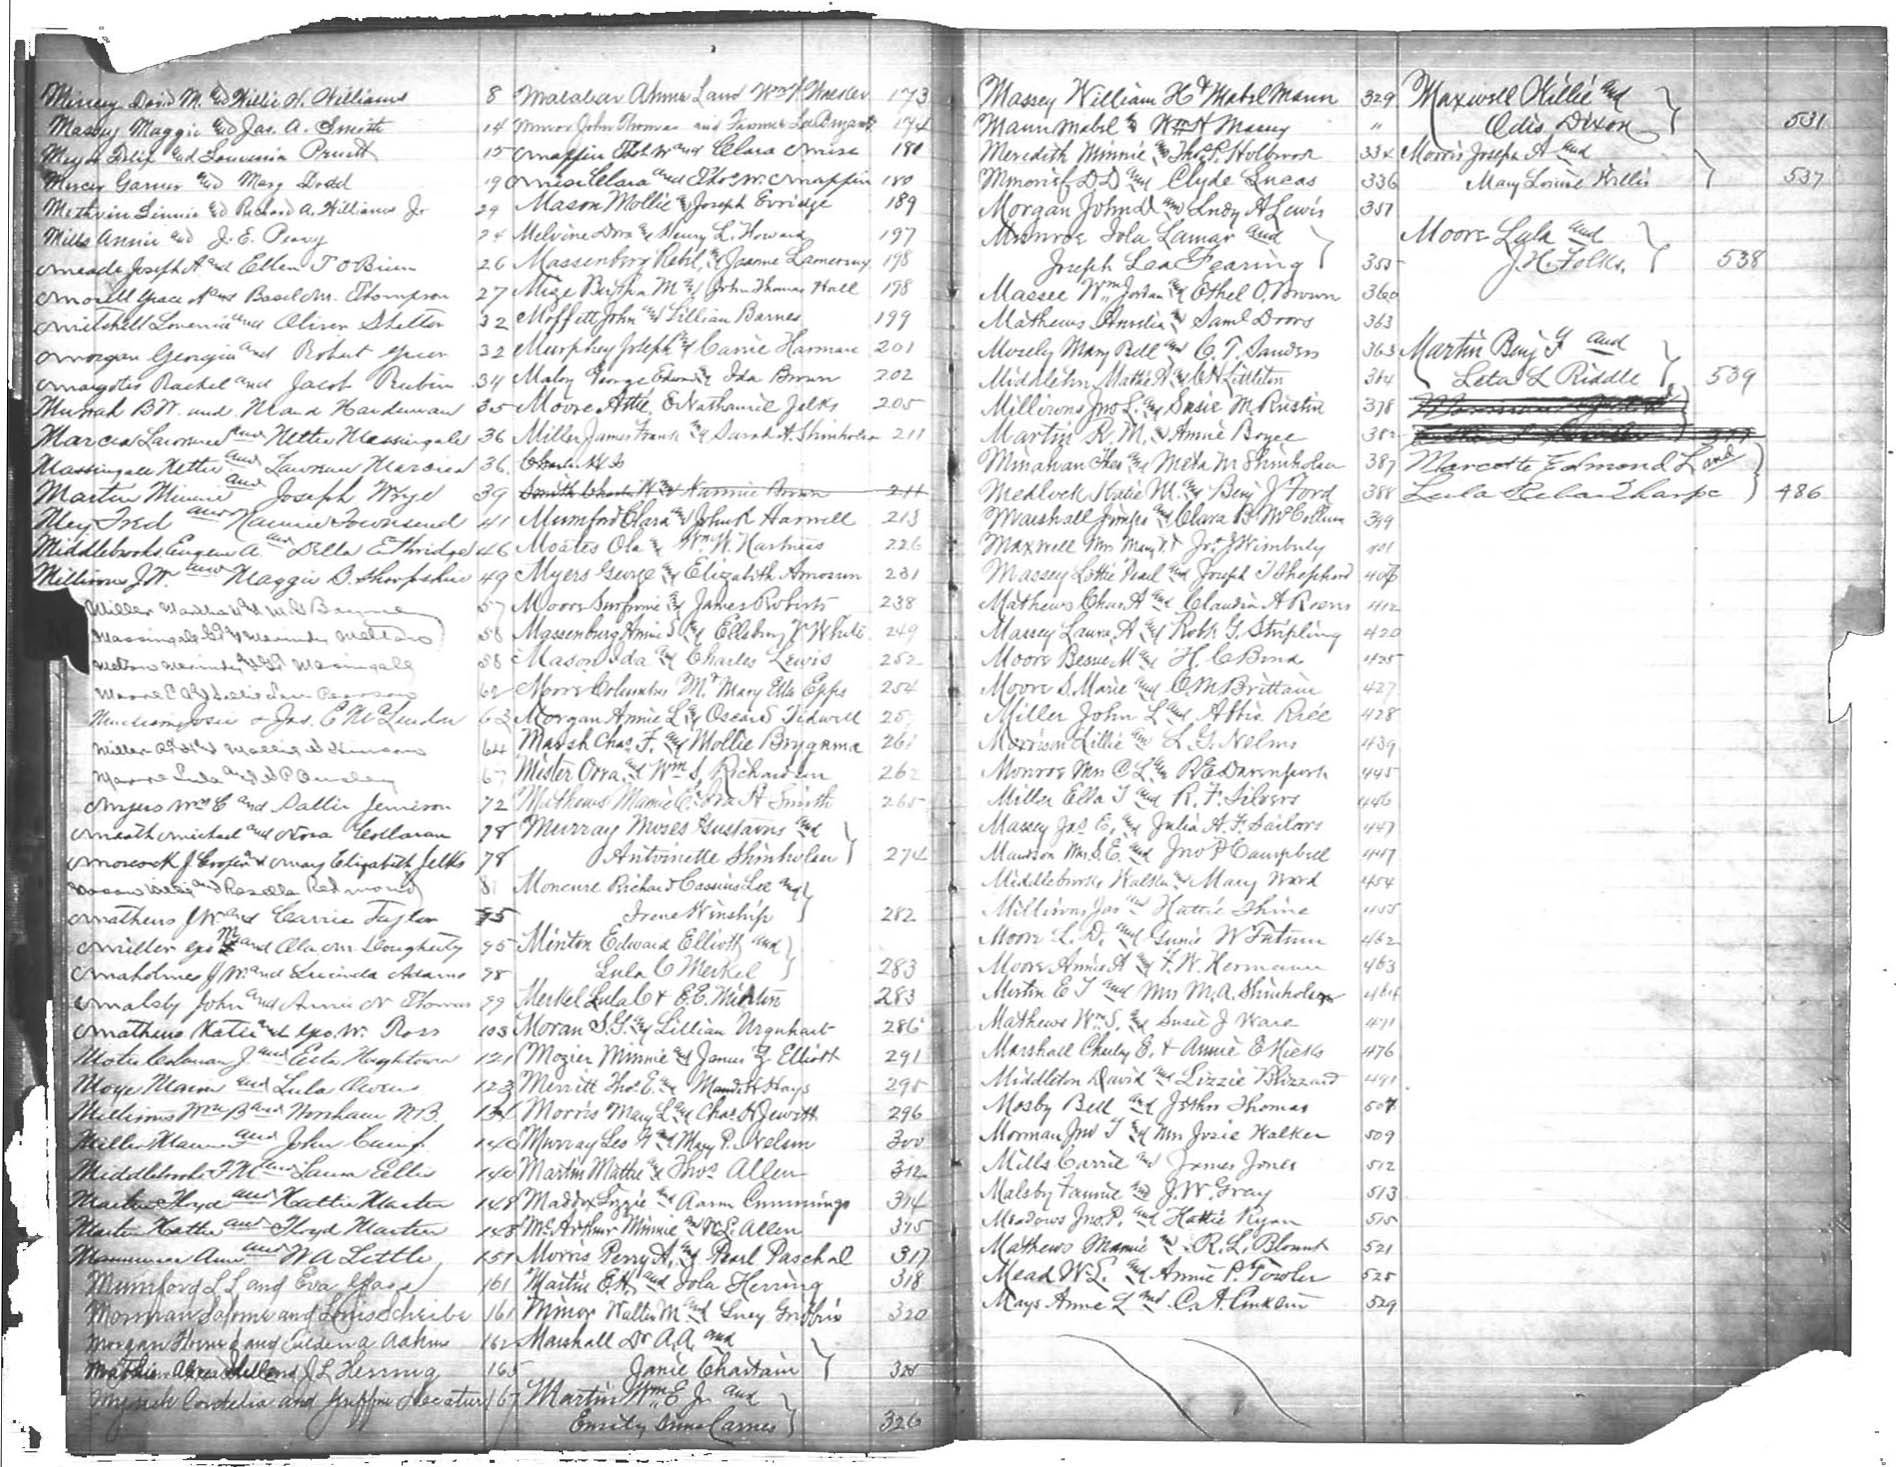 Mincey David M. and Willie H. Williams 8
Massey Maggie and Jas. A. Smith 14
and Louvenia Pruett 15
Mercer Garner and Mary Dodd 19
Methvin Linnie and Richard A. Williams Jr 24
Mills Annie and J. E. Peavy 24
Meade Joseph A and Ellen T O'Brien 26
Morell Grace A and Basil M. Thompson 27
Mitchell Louvenia and Oliver Shelton 32
Morgan Georgia and Robert Greer 32
Margolis Rachel and Jacob Rubin 34
Murrah B W. and Maud Hardeman 35
Marcia Lawrence and Nettie Massingale 36
Massingale Nettie and Lawrence Marcia 36
Martin Minnie and Joseph Wrye 39
Mey Fred and Townsend 41
Middlebrooks Eugene A. and Della Ethridge 46
Millirons J. W. and Maggie B. Shropshire 49
Miller Martha and M. G. 57
Massingale and Marinda Melton 58
Melton Marinda and Massingale 58
Moore and Pearson 62
Josie & Jas. C McLendon 63
Miller and Mollie 64
Moore Lula and 67
Myers Wm C and Sallie Jemison 72
Meath Michael and Nora Collaran 78
J. Cooper & Mary Elizabeth Jelks 78
and Rosella Redmond 81
Mathews J W and Carrie Taylor 95
Miller Geo and Ola M. Dougherty 95
J W. and Lucinda Adams 98
Malsby John and Annie N Thomas 99
Mathews Katie and Geo. W. Ross 103
Coleman J. and Eula Hightower 121
Moye and Lula Owens 123
Millirons Wm B and Worsham N B. 131
Miller and John Camp 140
Middlebrooks F M and Laura Ellis 140
Martin Floyd and Hattie Martin 148
Martin Hattie and Floyd Martin 148
Ann and W A Little 151
Mumford L L and Eva Glass 161
Morman Salome and Louis Scheibe 161
Morgan and Aakins 162
and J L Herring 165
Cordelia and Griffin Hector 167
Land Wm V 173
Minor John Thomas and Fannie Lee Bryant 174
Maffin Thos W and Clara Mise 180
Mise Clara and Thos W. Maffin 180
Mason Mollie & Joseph Evridge 189
Melvine Dora & Henry L. Howard 197
Massenberg Rebil, and Joanna 198
Mize Bertha M and John Thomas Hall 198
Moffett John and Lillian Barnes 199
Murphey Joseph and Carrie Harman 201
Maloy George Edward & Ida Brown 202
Moore Attie & Nathaniel Jelks 205
Miller James Frank and Sarah A. Shinholser 211
Charles H &
Smith Charles W and Nannie Brown 211
Mumford Clara and John R Harwell 213
Moates Ola & Wm. W. Hartness 226
Myers George and Elizabeth Amosun 231
Moore and James Roberts 238
Massenburg Annie S. and Ellsberry V White 249
Mason Ida and Charles Lewis 252
Moore Columbus M. & Mary Ella Epps 254
Morgan Annie L and Oscar S Tidwell 25
Marsh Chas. F. and Mollie Brygama 261
Mister Orra and Wm S. Richardson 262
Mathews Mamie C. & Ira A Smith 265
Murray Moses Gustavus and
Antoinette Shinholser 274
Moncure Richard Cassius Lee and
Irene Winship 282
Minton Edward Elliott and
Lula C Merkel 283
Merkel Lula C & E. E. Minton 283
Moran S. G. and Lillian Urquhart 286
Mozier Minnie and James Z Elliott 291
Merritt Thos E. and Maude H Hays 295
Morris Mary L and Chas. H Jewett 296
Murray Leo G and Mary P. Nelson 300
Martin Mattie and Thos Allen 312
Maddox Lizzie and Aaron Cummings 314
McArthur Minnie and W. E. Allen 315
Morris Perry A. and Pearl Paschal 317
Martin E. H. and Iola Herring 318
Minor Walter M and Lucy Griffin 320
Marshall Dr A. A. and
Janie Chastain 325
Martin Wm E Jr and
Emily Anna Carnes 326
Massey William H & Mabel Mann 329
Mann Mabel & Wm H Massey "
Meredith Minnie and Thos. P. Holbrook 334
D D and Clyde Lucas 336
Morgan John D and Lucy A Lewis 351
Munroe Iola Lamar and
Joseph Lea Fearing 355
Massee Wm Jordan and Ethel O. Brown 360
Mathews Amelia and Saml Doors 363
Mosely Mary Bell and C. T. Sanders 363
Mattie A. and C H Littleton 364
Millirons Jno L. and Susie M. Rustin 378
Martin R. M. & Annie Boyce 382
Minahan Thos and Meta M Shinholser 387
Medlock Katie M. and Benj J Ford 388
Marshall and Clara B McCollum 399
Maxwell Mrs Mary V & Jno. J Wimberly 401
Massey Lottie Pearl and Joseph T Shepherd 406
Mathews Chas A and Claudia A Rogers 412
Massey Laura A and Robt G. Stripling 420
Moore Bessie M and H. C Bond 425
Moore S. Marie and C. M Brittain 427
Miller John L and Attie Rice 428
Morrison Lillie and L. G. Nelms 439
Monroe Mrs C L and R E Davenport 445
Miller Ella T and R. F. Silvers 446
Massey Jas E. and Julia A. F. Sailors 447
Mrs. S. E. and Jno P Campbell 447
Middlebrooks Walter and Mary Ward 454
Millirons Jas and Hattie Shine 455
Moore L. D. and W Tatum 462
Moore Annie A and F. W. Hermann 463
Martin E T and Mrs M. A. Shinholser 464
Mathews Wm S. and Susie J Ware 471
Marshall Charley E. & Annie E Hicks 476
Middleton David and Lizzie Blizzard 491
Mosby Bell and John Thomas 507
Morman Jno T and Mrs Josie Walker 509
Mills Carrie and James Jones 512
Malsby Fannie and J. W. Gray 513
Meadows Jno. P. and Hattie Ryan 515
Mathews Mamie and R. L. Blount 521
Mead W. E. and Annie P. Fowler 525
Mays Anne L and C. A. 529
Maxwell Willie and
Odis Dixon 531
Morris Joseph A and
Mary Louise Willis 537
Moore Lula and
J H Folks. 538
Martin Benj F and
Leta L Riddle 539
Marcotte Edmond L and
Lula Reba Tharpe 486